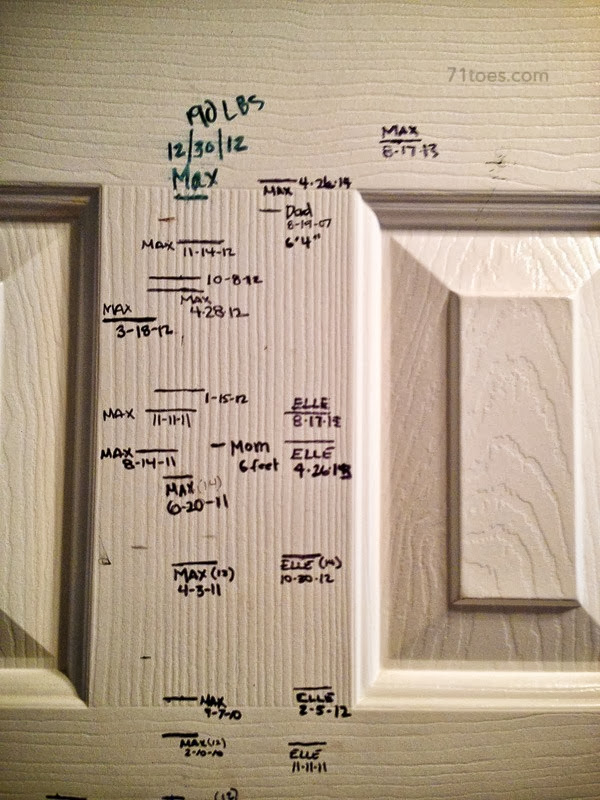 71toes.com
190 LBS
12/30/12
Max
MAX
8-17-13
4-26-13
MAX
Dad
8-19-07
6'4"
MAX
11-14-12
10-8-12
MAX
4-28-12
MAX
3-18-12
1-15-12
MAX
11-11-11
ELLE
8-17-13
MAX
8-14-11
Mom
6 feet
ELLE
4-26-13
MAX (14)
6-20-11
MAX (13)
4-3-11
ELLE (14)
10-30-12
MAX
9-7-10
ELLE
2-5-12
MAX (12)
2-10-10
ELLE
11-11-11